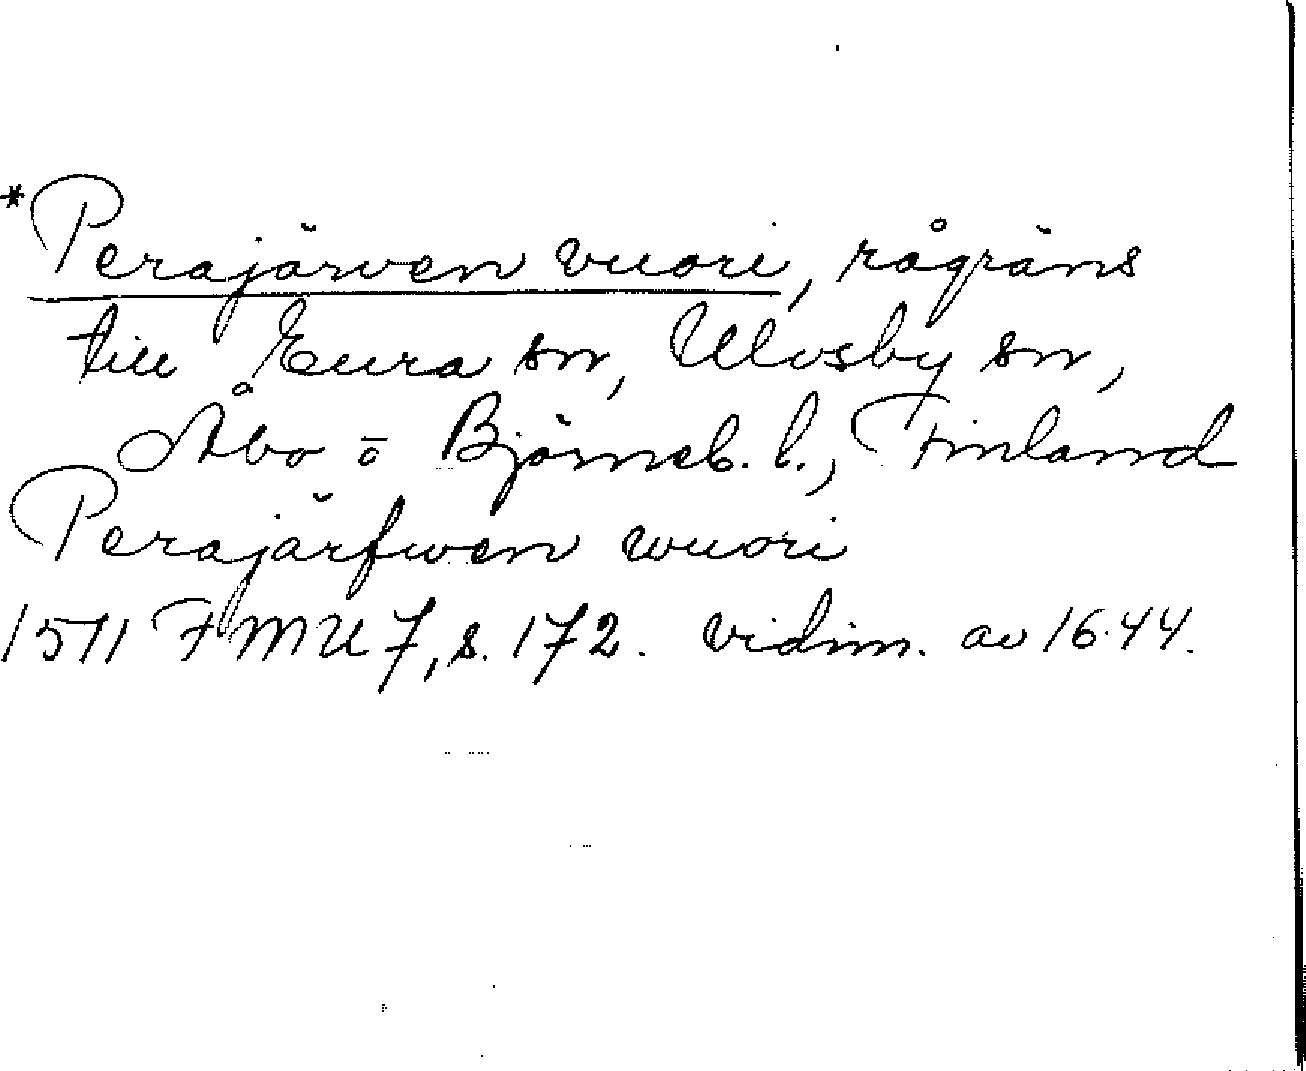 *Perajärven vuori, rågräns
till Eura sn, Ulvsby sn,
Åbo o Björneb. l., Finland
Perajärfwen wuori
1511 FMU 7, s. 172. vidim. av 1644.